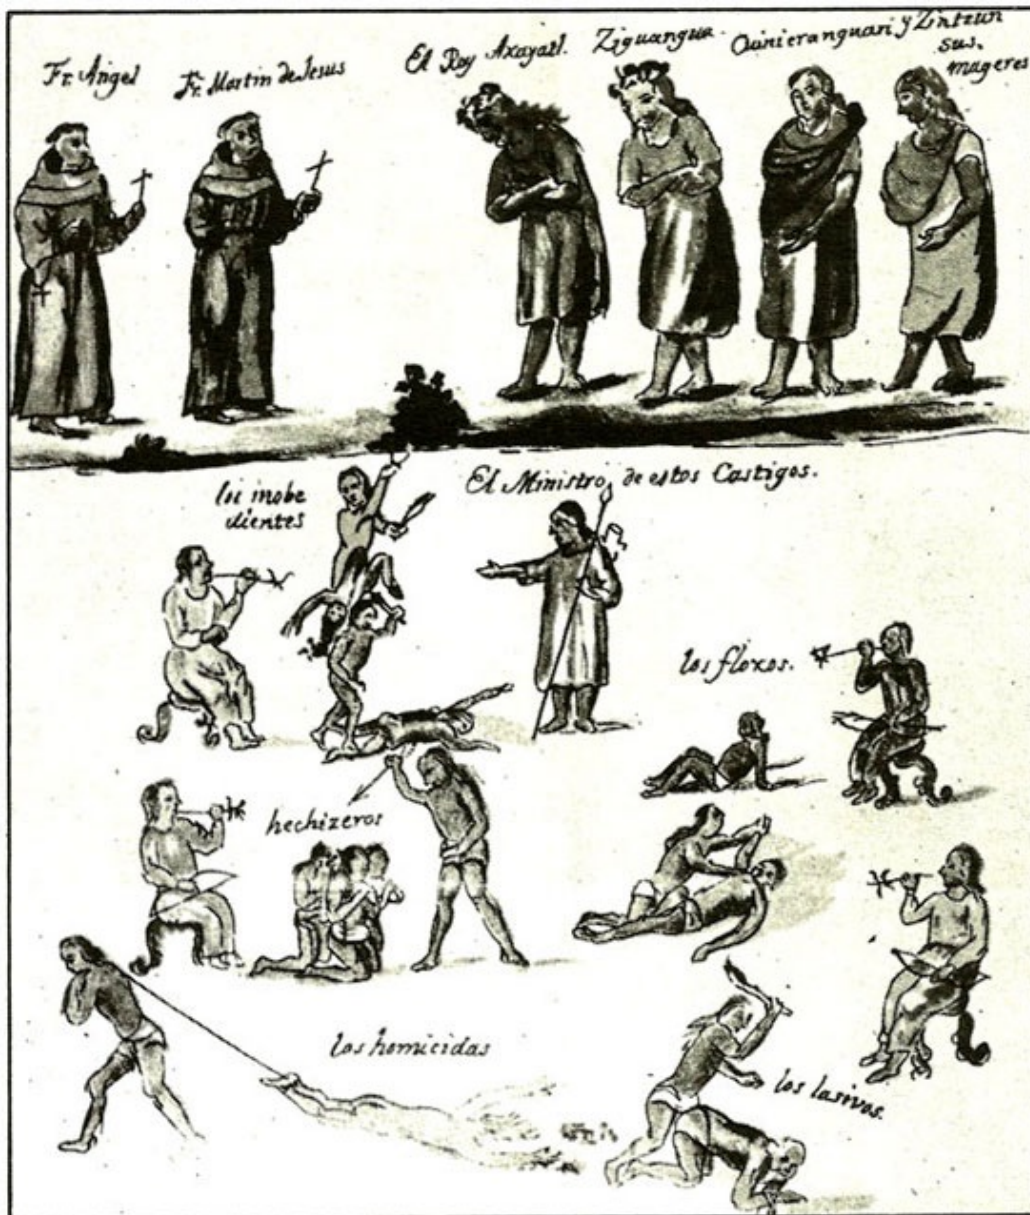 Fr. Angel
Fr. Martin de Jesus
El Rey Axayatl.
Ziguangua.
Quinieranguari y Zintzun
sus.
mageres
los inobe
dientes
El Ministro de estos Castigos.
los floxos.
hechizeros
los homicidas
los lasivos.